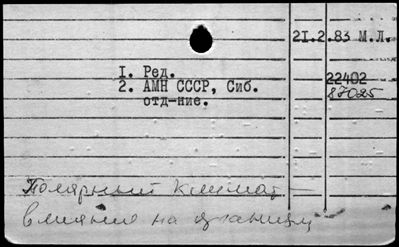 21.2.83 М.Л.
1. Ред.
2. АМН СССР, Сиб.
отд-ние.
22402
87025
Полярный климат —
влияние на организм